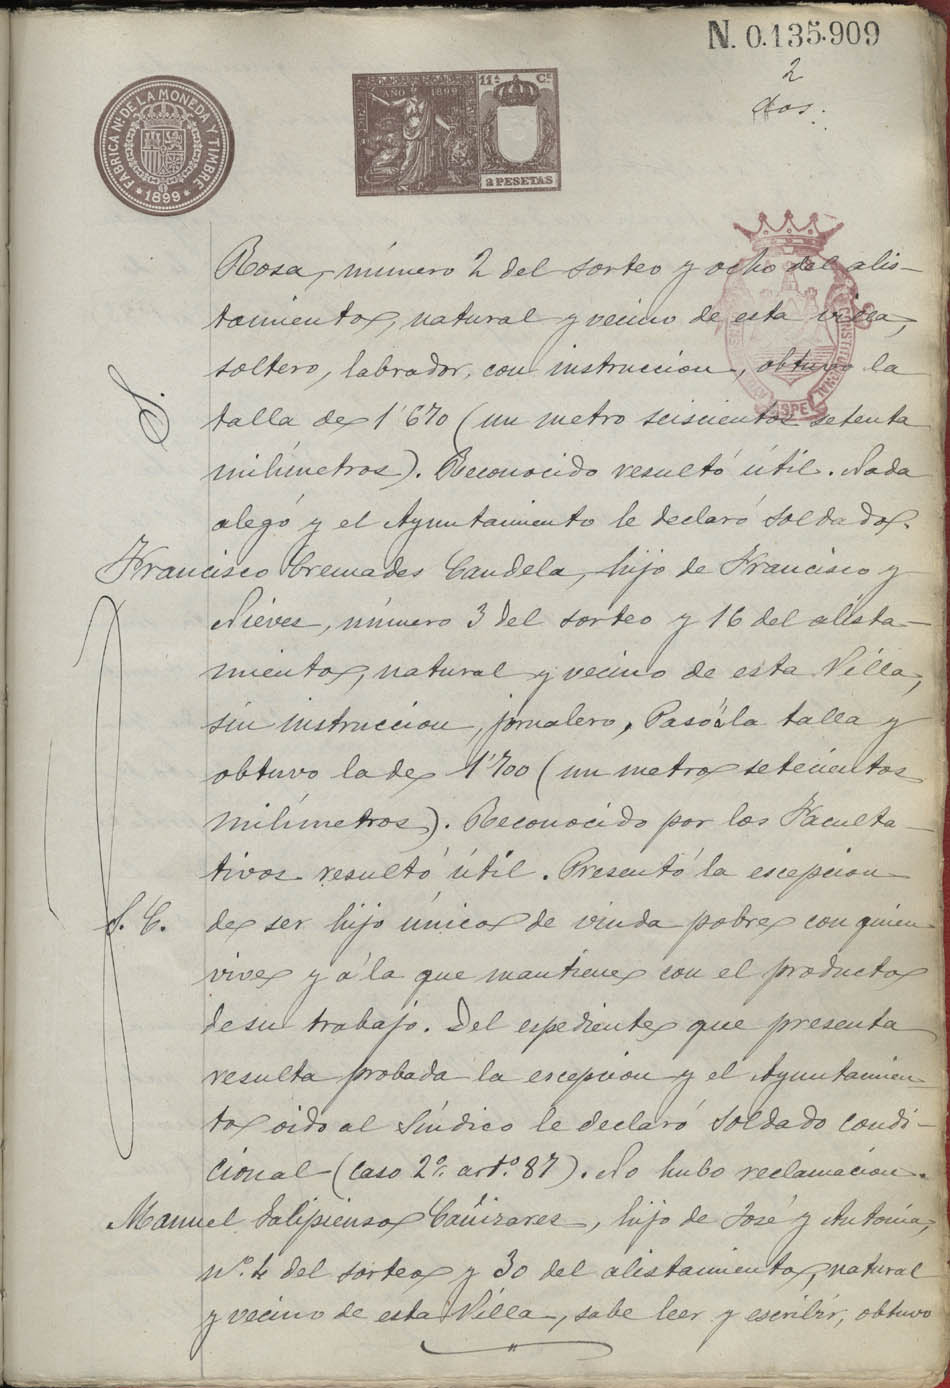 N. 0.135.909
2
dos.
FABRICA Nl. DE LA MONEDA Y TIMBRE
* 1899 *
AÑO 1899
11ª Cª
2 PESETAS
Rosa, número 2 del sorteo y ocho del alis-
tamiento, natural y vecino de esta villa,
soltero, labrador, con instruccion, obtuvo la
S. talla de 1'670 (un metro seiscientos setenta
milímetros). Reconocido resultó útil. Nada
alegó y el Ayuntamiento le declaró soldado.
Francisco Cremades Candela, hijo de Francisco y
Nieves, número 3 del sorteo y 16 del alista-
miento, natural y vecino de esta Villa,
sin instruccion, jornalero, Pasó á la talla y
obtuvo la de 1'700 (un metro setecientos
milímetros). Reconocido por los Faculta-
tivos resultó útil. Presentó la escepcion
S. C. de ser hijo único de viuda pobre con quien
vive y á la que mantiene con el producto
de su trabajo. Del espediente que presenta
resulta probada la escepcion y el Ayuntamien-
to oido al Síndico le declaró Soldado condi-
cional (caso 2º. art.º 87). No hubo reclamacion.
Manuel Cañizares, hijo de José y Antonia,
nº. 4 del sorteo y 30 del alistamiento, natural
y vecino de esta Villa, sabe leer y escribir, obtuvo